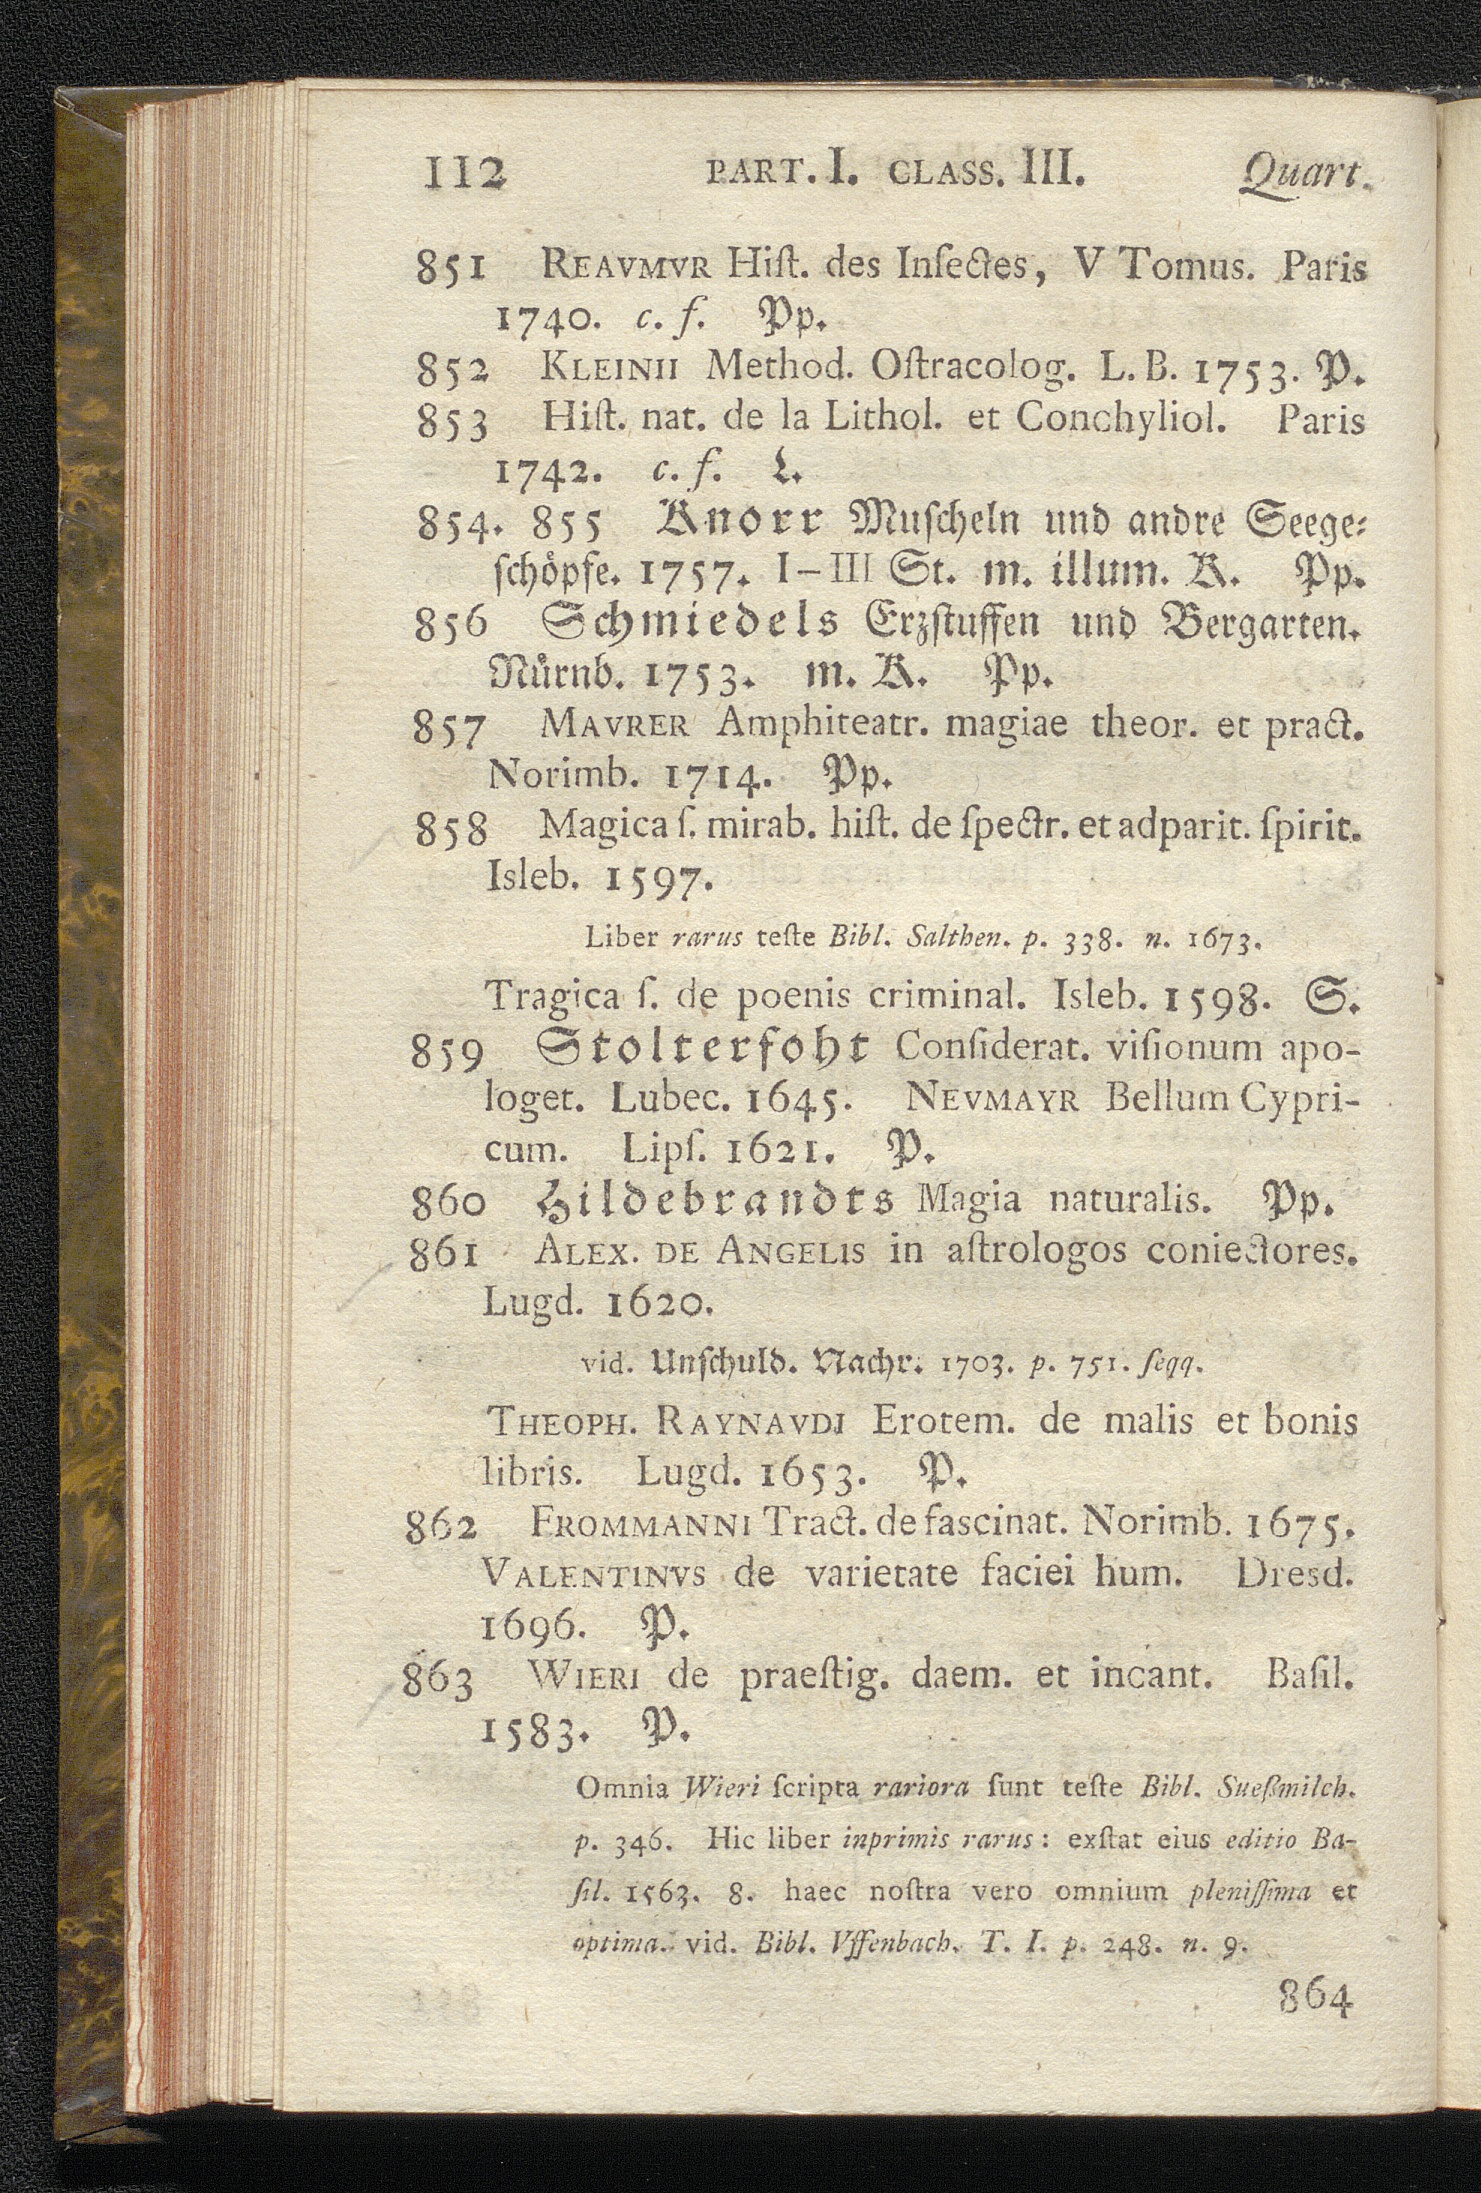 112 PART. I. CLASS. III. Quart.
851 REAVMVR Hiſt. des Inſectes, V Tomus. Paris
1740. c. f. Pp.
852 KLEINII Method. Oſtracolog. L. B. 1753. P.
853 Hiſt. nat. de la Lithol. et Conchyliol. Paris
1742. c. f. L.
854. 855 Knorr Muſcheln und andre Seege⸗
ſchöpfe. 1757. I–III St. m. illum. K. Pp.
856 Schmiedels Erzſtuffen und Bergarten.
Nürnb. 1753. m. K. Pp.
857 MAVRER Amphiteatr. magiae theor. et pract.
Norimb. 1714. Pp.
858 Magica ſ. mirab. hiſt. de ſpectr. et adparit. ſpirit.
Isleb. 1597.
Liber rarus teſte Bibl. Salthen. p. 338. n. 1673.
Tragica ſ. de poenis criminal. Isleb. 1598. S.
859 Stolterfoht Conſiderat. viſionum apo-
loget. Lubec. 1645. NEVMAYR Bellum Cypri-
cum. Lipſ. 1621. P.
860 Hildebrandts Magia naturalis. Pp.
861 ALEX. DE ANGELIS in aſtrologos coniectores.
Lugd. 1620.
vid. Unſchuld. Nachr. 1703. p. 751. ſeqq.
THEOPH. RAYNAVDI Erotem. de malis et bonis
libris. Lugd. 1653. P.
862 FROMMANNI Tract. de fascinat. Norimb. 1675.
VALENTINVS de varietate faciei hum. Dresd.
1696. P.
863 WIERI de praeſtig. daem. et incant. Baſil.
1583. P.
Omnia Wieri ſcripta rariora ſunt teſte Bibl. Sueßmilch.
p. 346. Hic liber inprimis rarus: exſtat eius editio Ba-
ſil. 1563. 8. haec noſtra vero omnium pleniſſima et
optima. vid. Bibl. Vffenbach. T. I. p. 248. n. 9.
864